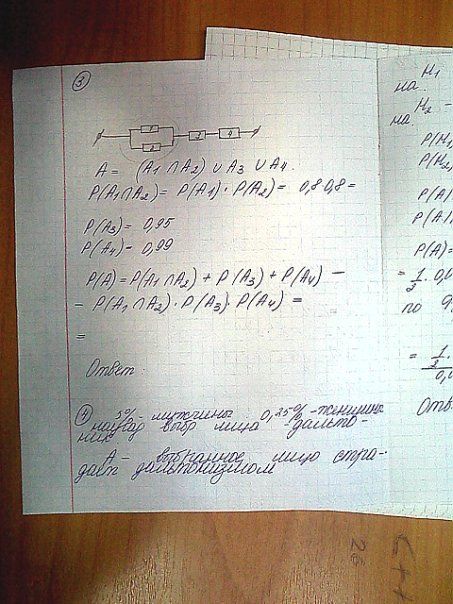 ③
1
2
3
4
A = (A1 ∩ A2) ∪ A3 ∪ A4.
P(A1 ∩ A2) = P(A1) · P(A2) = 0,8 0,8 =
P(A3) = 0,95
P(A4) = 0,99
P(A) = P(A1 ∩ A2) + P(A3) + P(A4) —
— P(A1 ∩ A2) · P(A3) · P(A4) =
=
Ответ
④ 5% - мужчины 0,25% - женщины
наугад выбр лицо дальто-
ник
A - выбранное лицо стра-
дает дальтонизмом
H1
на
H2 -
на
P(H1
P(H2)
P(A|
P(A|
P(A) =
= 1/2 · 0,0
по
= 1/2 ·
0,0
Отв
26
C++